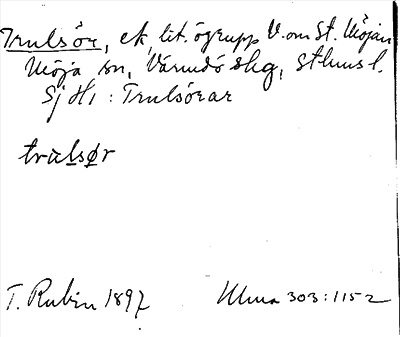 Trulsör, ek, lit. ögrupp V. om St. Möjan
Möja sn, Värmdö skg, Sthlms l.
Sj H1 : Trulsörar
trulsør
T. Rubin 1897
Ulma 303:115 2